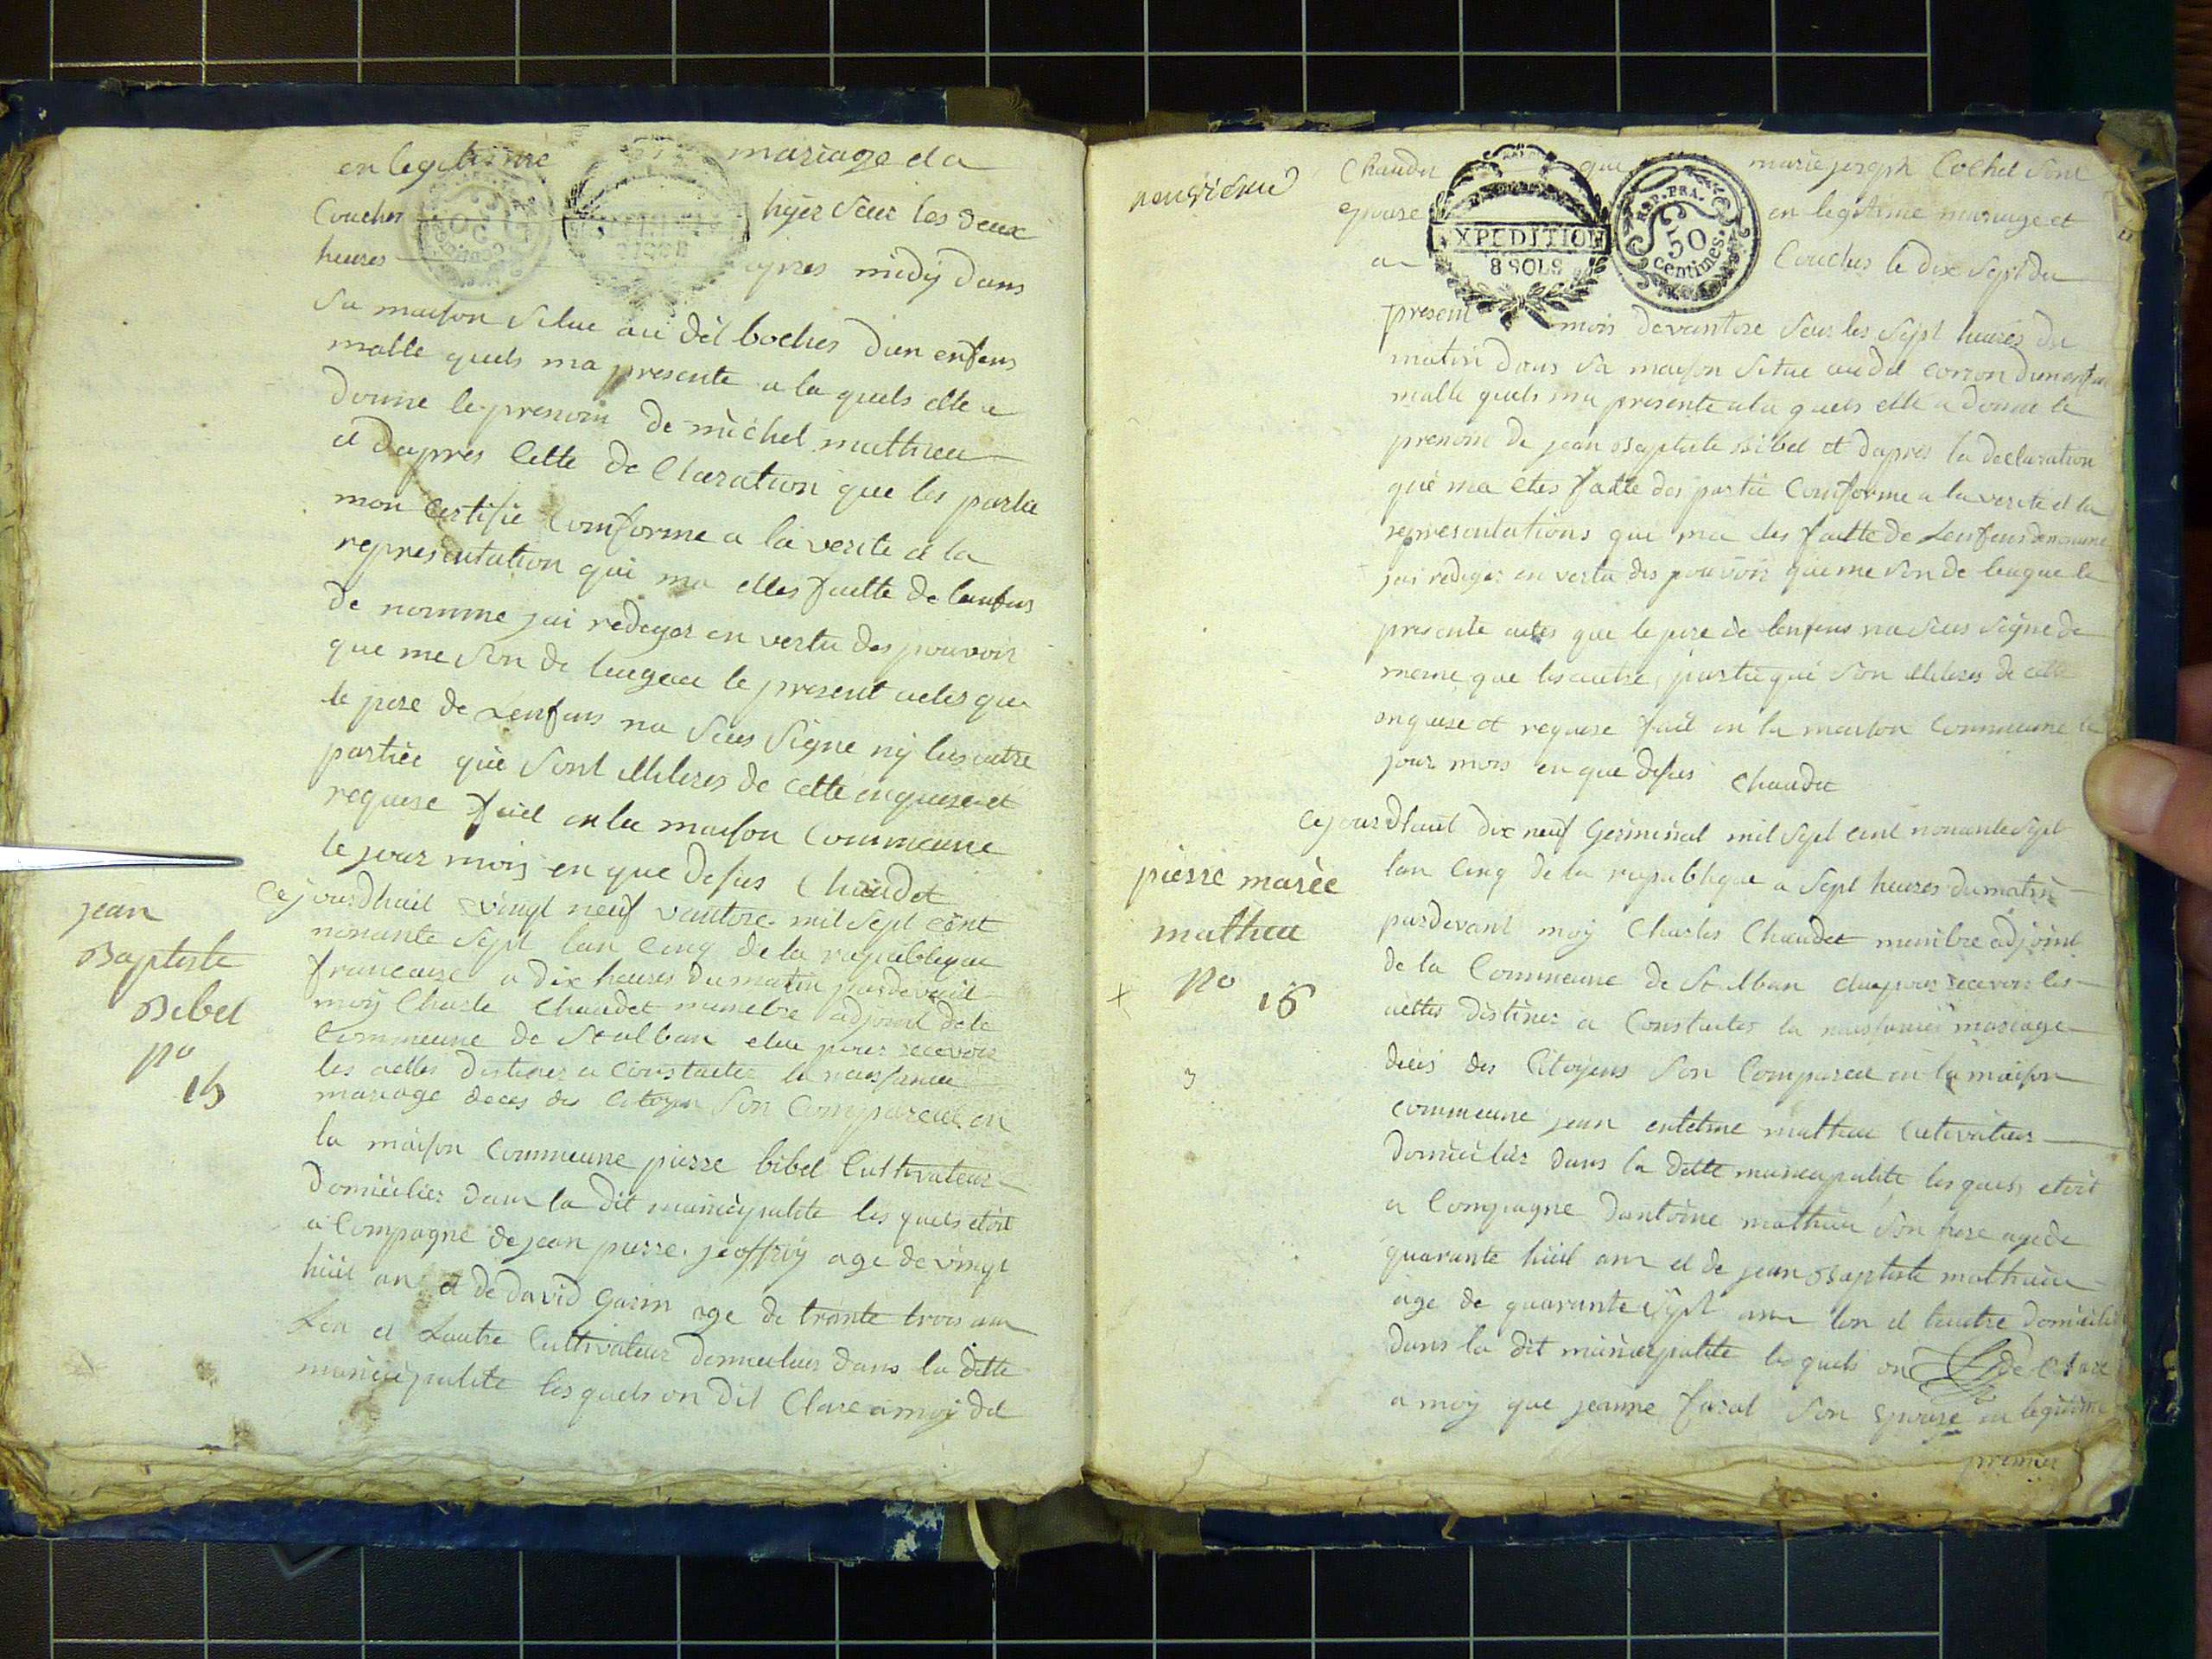 en legitime mariage et a
Coucher hyer seur les deux
heures apres midÿ dans
sa maison situe au dit boches dun enfans
malle quels ma presente a la quels elle a
donne le prenom de michel mathieu
et dapres cette de Claration que les partie
mon certifie comforme a la verite et la
representation qui ma ettes faitte de lenfans
de nomme jai rediger en vertu des pouvoir
que me son de leugeue le present actes que
le pere de Lenfans na seus signe nÿ les autre
partiée qui sont illiteres de cette enquise et
requise fait en la maison Commeune
le jour mois en que desus Chaudet
jean
Baptiste
Bibel
no
15
Cejourdhuit vingt neuf vantose mil sept cent
nonante sept lan cinq de la republique
francaise a dix heures du matin pardevant
moÿ Charle Chaudet membre adjoint de la
Commeune de St alban elue pour recevoir
les actes destiner a constater la naissance
mariage deces des Citoyen son Compareut en
la maison Commeune pierre bibel Cultivateur
domicilier dans la dit municipalite les quels etoit
a Compagne de jean pierre jeoffroÿ age de vingt
huit an et de david garin age de trante trois an
Lun et Lautre Cultivateur domicilier dans la ditte
municipalite les quels on dit Clare a moÿ dit
neuvieme
Chaudet que marie joseph Cochet son
epouse en legitime mariage et
a Couches le dix sept du
EXPEDITION
8 SOLS
REP. FRA.
50
centimes.
present mois de vantose seur les sept heures du
matin dans sa maison situe au dit corron dun enfans
malle quels ma presente a la quels elle a donne le
prenom de jean Baptiste Bibel et dapres la declaration
qui ma ettes faitte des partie Comforme a la verite et la
representations qui ma ettes faitte de Lenfans denomme
jai rediger en vertu des pouvoir que me son de leugue le
presente actes que le pere de lenfans na seus signe de
meme que les autre partie qui son illiteres de cette
enquise et requise fait en la maison Commeune le
jour mois en que desus Chaudet
pierre marie
mathieu
no
16
3
Cejourdhuit dix neuf Germinal mil sept cent nonante sept
lan cinq de la republique a sept heures du matin
pardevant moÿ Charles Chaudet membre adjoint
de la Commeune de St alban elue pour recevoir les
acttes distiner a Constater la naissance mariage
deces des Citoyens son Compareu en la maison
commeune jean entelme mathieu cultivateur
domicilier dans la ditte municipalite les quels etoit
a Compagne dantoine mathieu son frere age de
quarante huit ans et de jean Baptiste mathieu
age de quarante sept ans lun et lautre domicilier
dans la dit municipalite les quels on de Clare
a moÿ que jeanne faral son epouse en legitime
premier